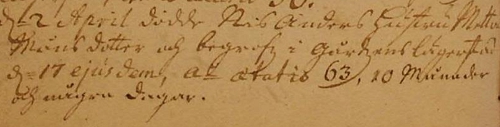 d. 2 April dödde Nils Anders Hustru Metta
Måns dotter och begrofs i Gården lägerstad
d. 17 ejusdem, A:o ætatis 63, 10 Månader
och några dagar.